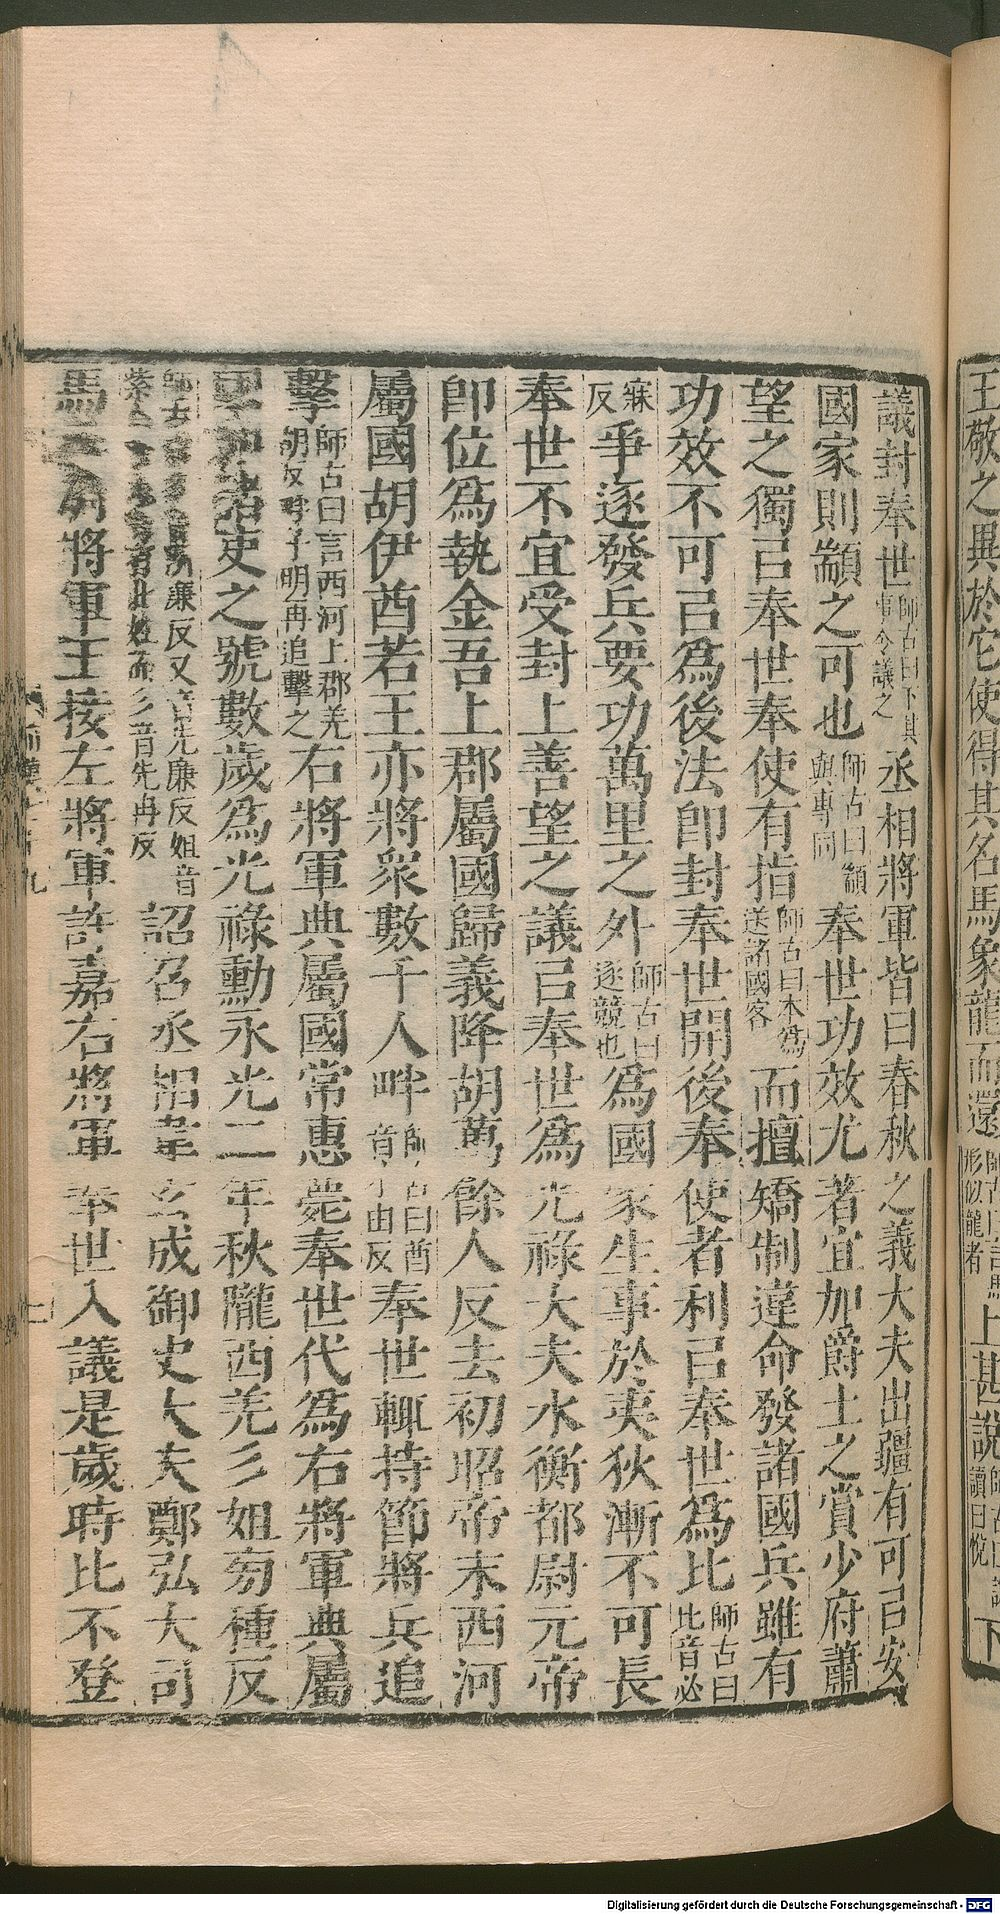 王敬之異於它使得其名馬象龍而還師古曰言馬形似龍者上甚說師古曰說讀曰悅下
議封奉世師古曰下其事令議之丞相將軍皆曰春秋之義大夫出疆有可㠯安
國家則顓之可也師古曰顓與專同奉世功效尤著宜加爵土之賞少府蕭
望之獨㠯奉世奉使有指師古曰本爲送諸國客而擅矯制違命發諸國兵雖有
功效不可㠯爲後法卽封奉世開後奉使者利㠯奉世爲比師古曰比音必
寐反爭逐發兵要功萬里之外師古曰逐競也爲國家生事於夷狄漸不可長
奉世不宜受封上善望之議㠯奉世爲光祿大夫水衡都尉元帝
卽位爲執金吾上郡屬國歸義降胡萬餘人反去初昭帝末西河
屬國胡伊酋若王亦將衆數千人畔師古曰酋音才由反奉世輒持節將兵追
擊師古曰言西河上郡羌胡反畔子明再追擊之右將軍典屬國常惠薨奉世代爲右將軍典屬
國諸吏之號數歲爲光祿勳永光二年秋隴西羌彡姐㫄種反
師古廉反又音先廉反姐音紫有此姓而彡音先冉反詔召丞相韋玄成御史大夫鄭弘大司
馬將軍王接左將軍許嘉右將軍奉世入議是歲時比不登
Digitalisierung gefördert durch die Deutsche Forschungsgemeinschaft - DFG